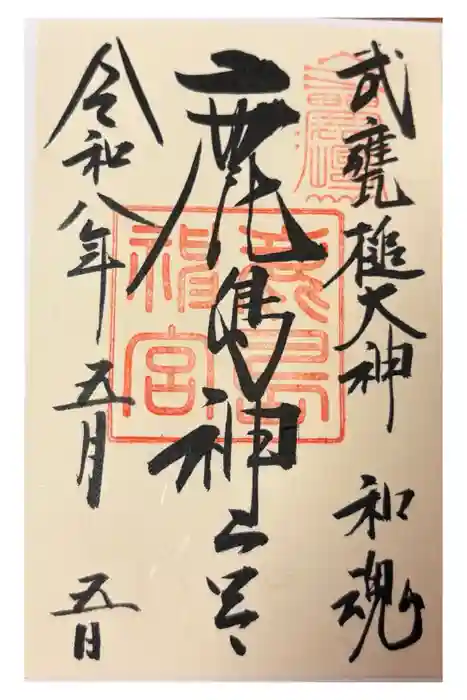 武甕槌大神　和魂
鹿島神宮
鹿島神宮
令和八年五月五日